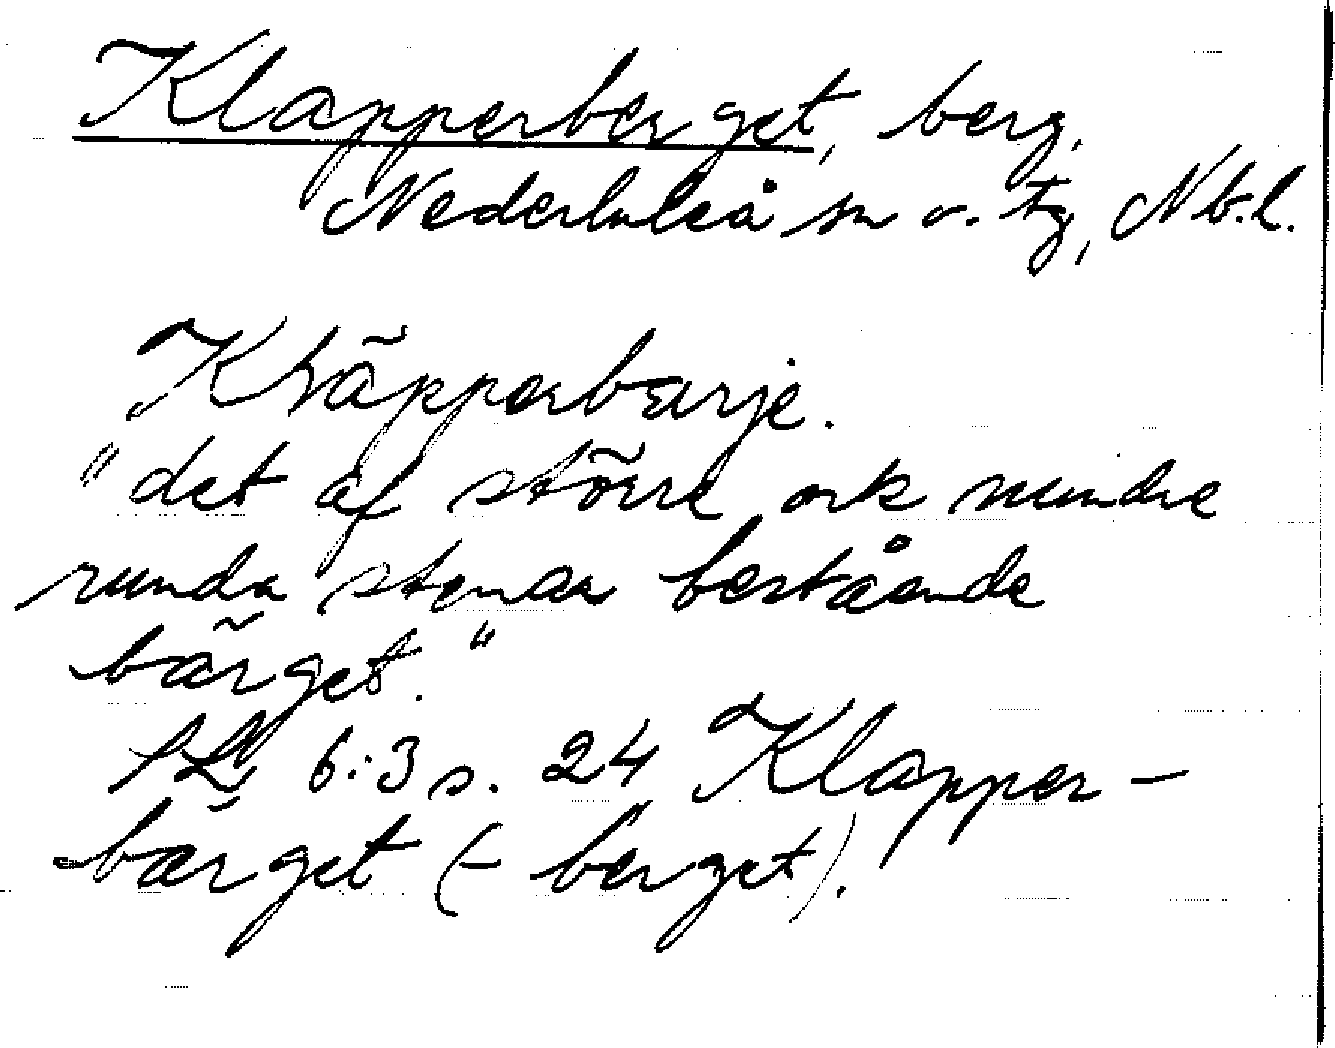 Klapperberget, berg,
Nederluleå sn o. tg, Nb.l.
Kläpperbärje.
"det af större ock mindre
runda stenar bestående
bärget."
SL 6:3 s. 24 Klapper-
bärget (-berget).